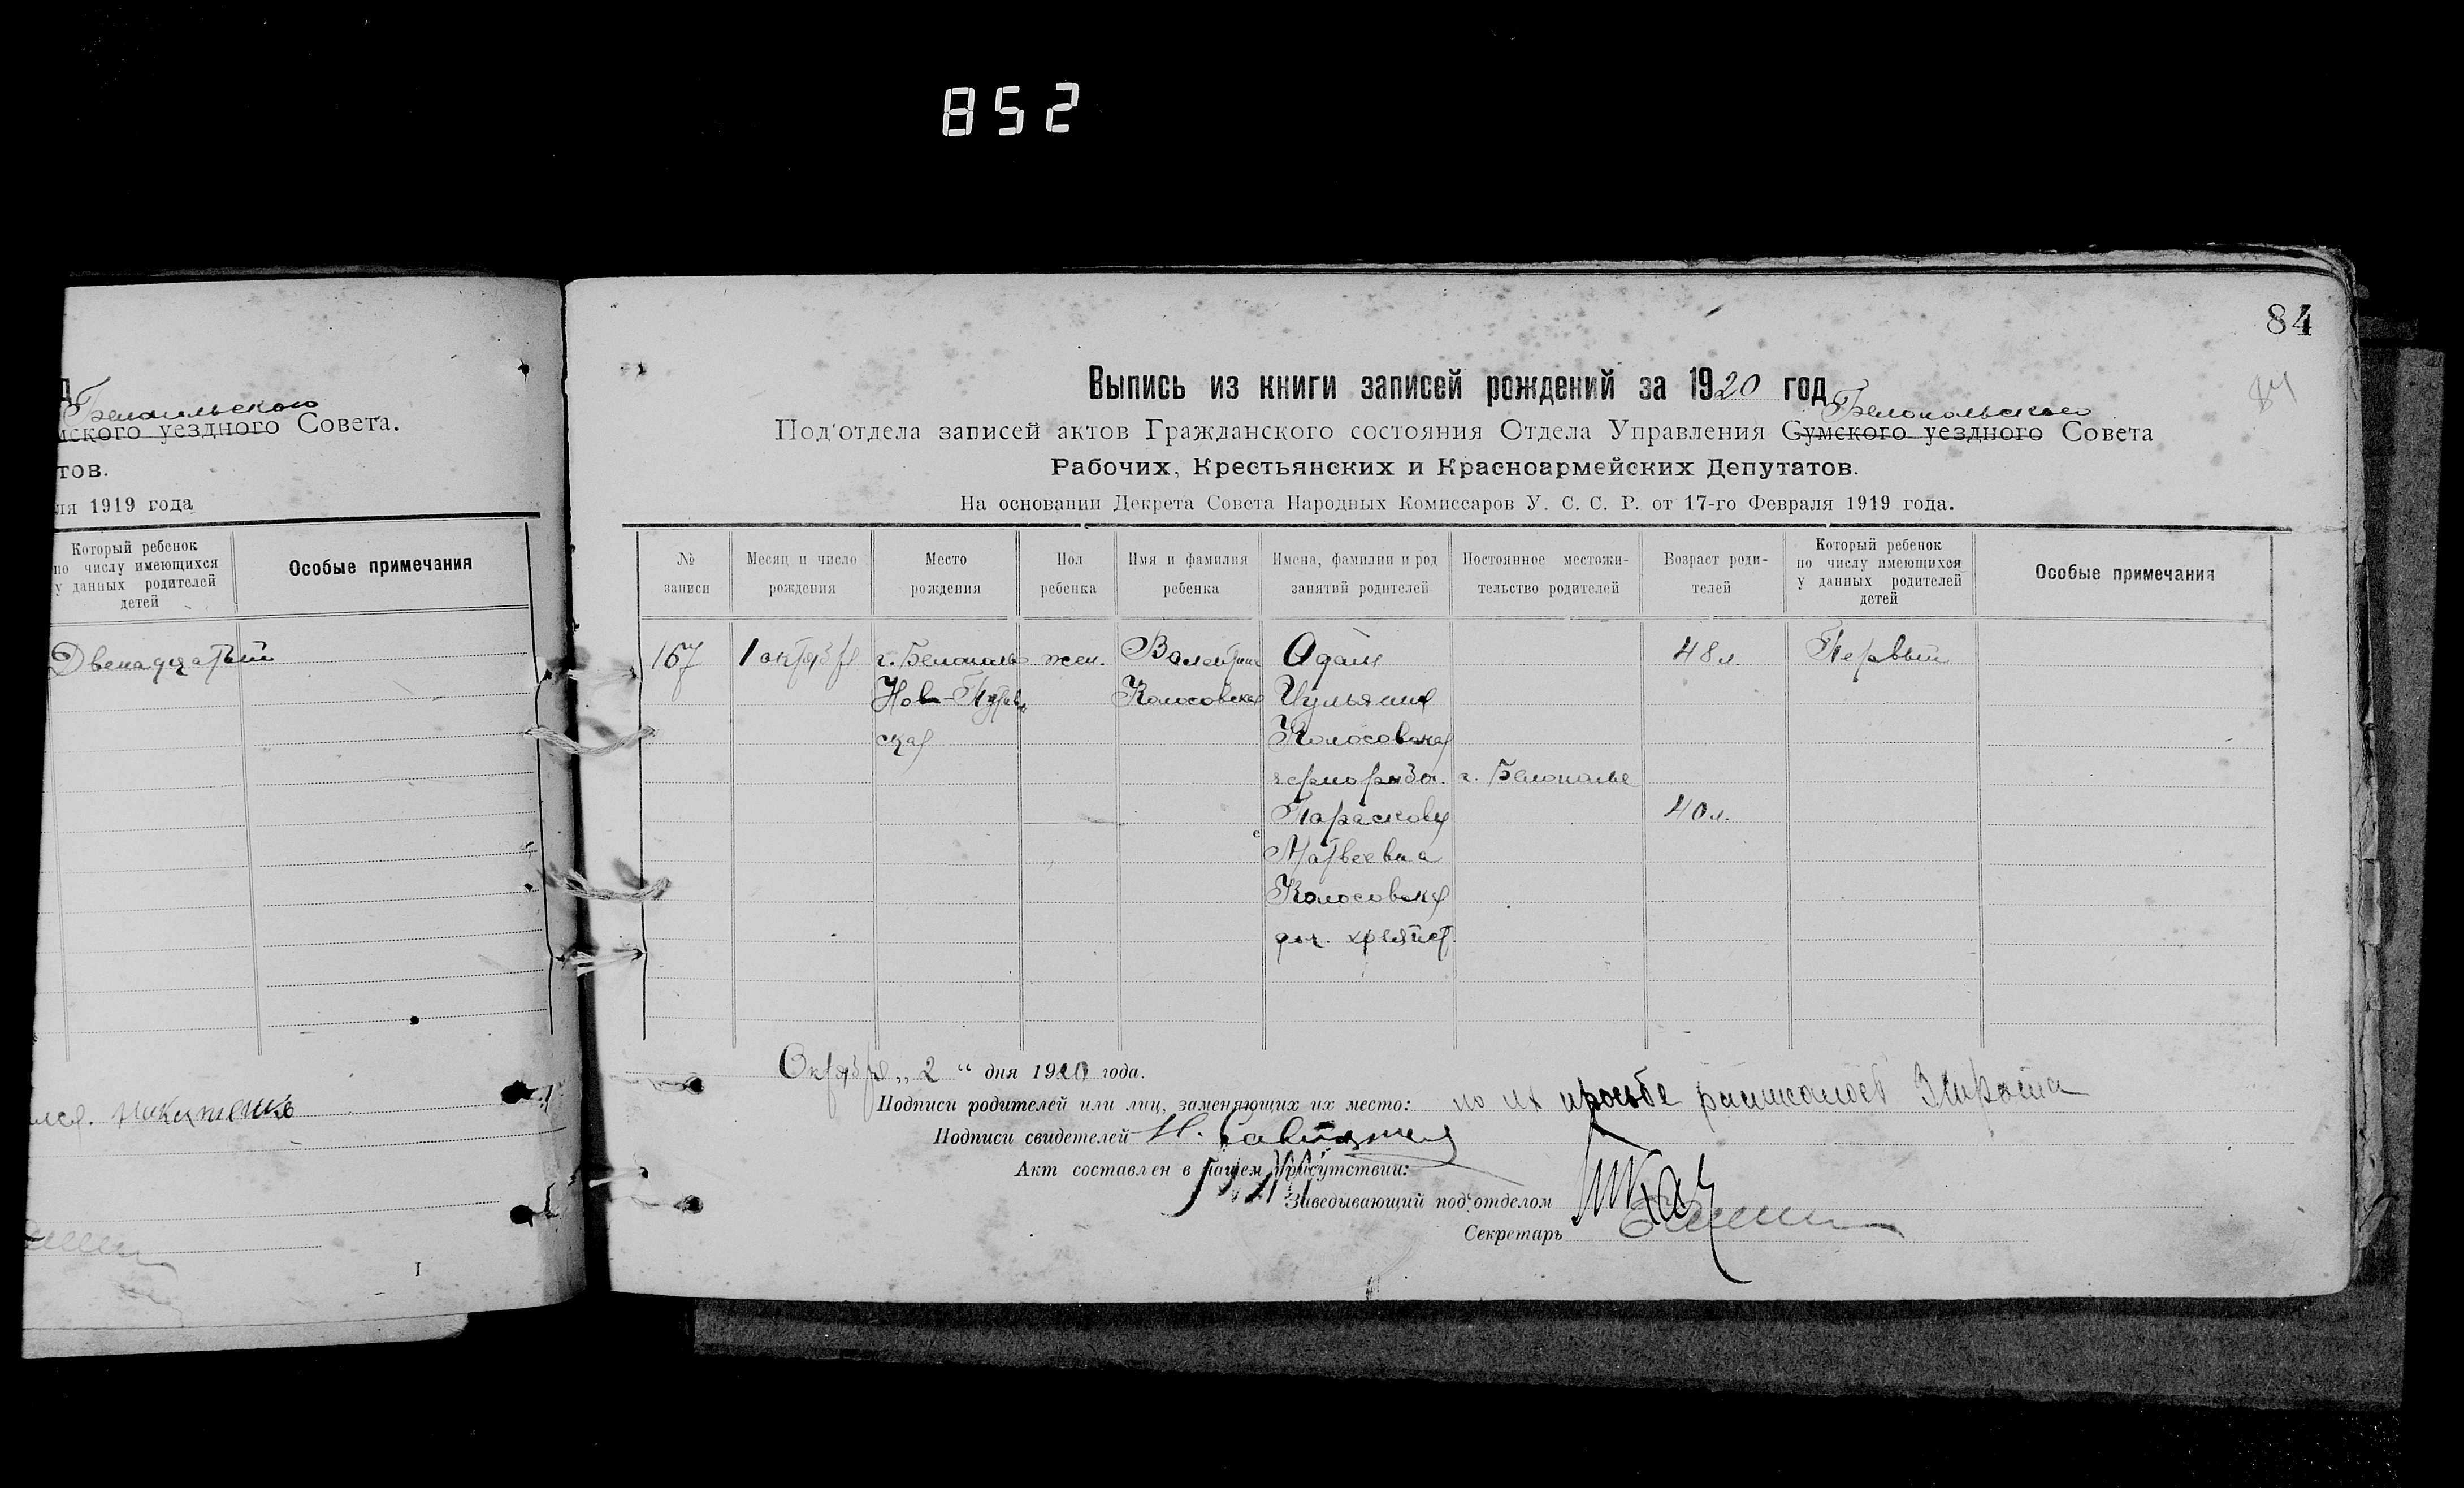 852
Белопольского
мского уездного Совета.
тов.
ля 1919 года
Который ребенок
по числу имеющихся
у данных родителей
детей
Особые примечания
Двенадцатый
I
84
84
Выпись из книги записей рождений за 1920 год
Белопольского
Под'отдела записей актов Гражданского состояния Отдела Управления Сумского уездного Совета
Рабочих, Крестьянских и Красноармейских Депутатов.
На основании Декрета Совета Народных Комиссаров У. С. С. Р. от 17-го Февраля 1919 года.
№
записи
Месяц и число
рождения
Место
рождения
Пол
ребенка
Имя и фамилия
ребенка
Имена, фамилии и род
занятий родителей
Постоянное местожи-
тельство родителей
Возраст роди-
телей
Который ребенок
по числу имеющихся
у данных родителей
детей
Особые примечания
167 1 октября г. Белополь жен. Валентина Адам 48 л. Первый
Нов-
Колосовская
ская Колосовская
г. Белополье
Параскова 40 л.
Матвеевна
Колосовская
Октября „ 2 “ дня 1920 года.
Подписи родителей или лиц, заменяющих их место: по их просьбе
Подписи свидетелей Н.
Акт составлен в нашем присутствии:
Заведывающий под'отделом
Секретарь